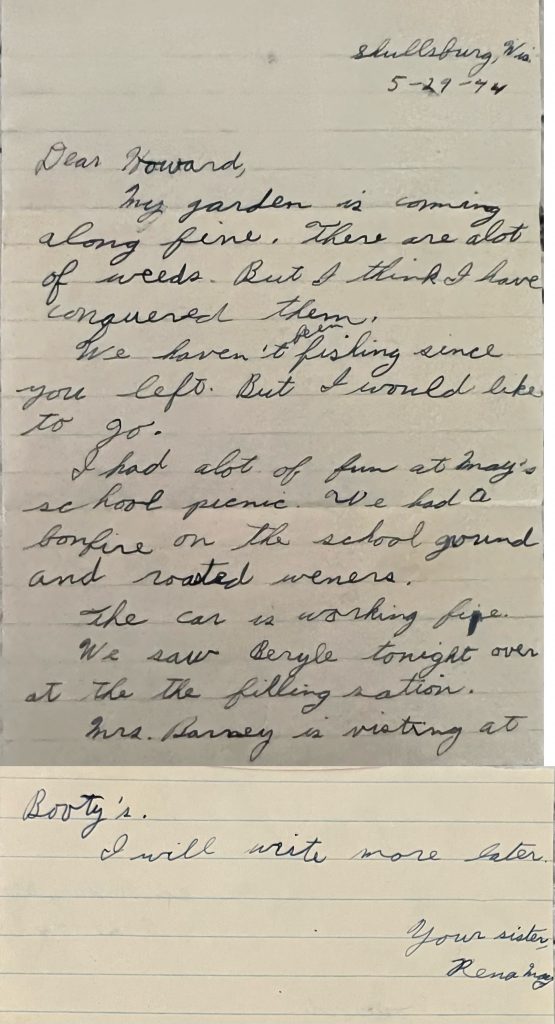 Shullsburg, Wis.
5-29-44
Dear Howard,
My garden is coming
along fine. There are alot
of weeds. But I think I have
conquered them.
We haven't been fishing since
you left. But I would like
to go.
I had alot of fun at May's
school picnic. We had a
bonfire on the school gound
and roated weners.
The car is working fine.
We saw Beryle tonight over
at the the filling sation.
Mrs. Barney is visting at
Booty's.
I will write more later.
Your sister,
Rena May